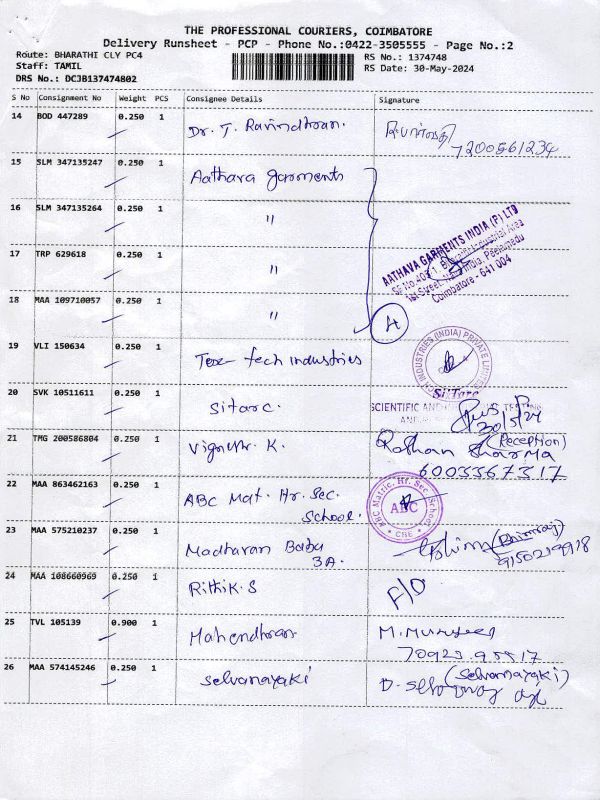 THE PROFESSIONAL COURIERS, COIMBATORE
Delivery Runsheet - PCP - Phone No.:0422-3505555 - Page No.:2
Route: BHARATHI CLY PC4
RS No.: 1374748
Staff: TAMIL
RS Date: 30-May-2024
DRS No.: DCJB137474802
S No Consignment No Weight PCS Consignee Details Signature
14 BOD 447289 0.250 1 Dr. T. Ravindhran.
7200561234
15 SLM 347135247 0.250 1 Aathava garments
16 SLM 347135264 0.250 1 "
AATHAVA GARMENTS INDIA (P) LTD
17 TRP 629618 0.250 1 "
Coimbatore - 641 004
18 MAA 109710057 0.250 1 "
A
19 VLI 150634 0.250 1 Tex-tech industries
INDUSTRIES (INDIA) PRIVATE LIMITED
SiTarc
20 SVK 10511611 0.250 1 Sitarc.
SCIENTIFIC AND TESTING
30/5/24
21 TMG 200586804 0.250 1 Vignesh. K.
(Reception)
Rothan Sharma
6003567317
22 MAA 863462163 0.250 1 ABC Mat. Hr. Sec. School.
ABC Matric. Hr. Sec. School
ABC
CBE
23 MAA 575210237 0.250 1 Madhavan Babu 3A.
(Bhimraj)
9150219918
24 MAA 108660969 0.250 1 Rithik. S
F/O
25 TVL 105139 0.900 1 Mahendhran
26 MAA 574145246 0.250 1 Selvanayaki
(Selvanayaki)